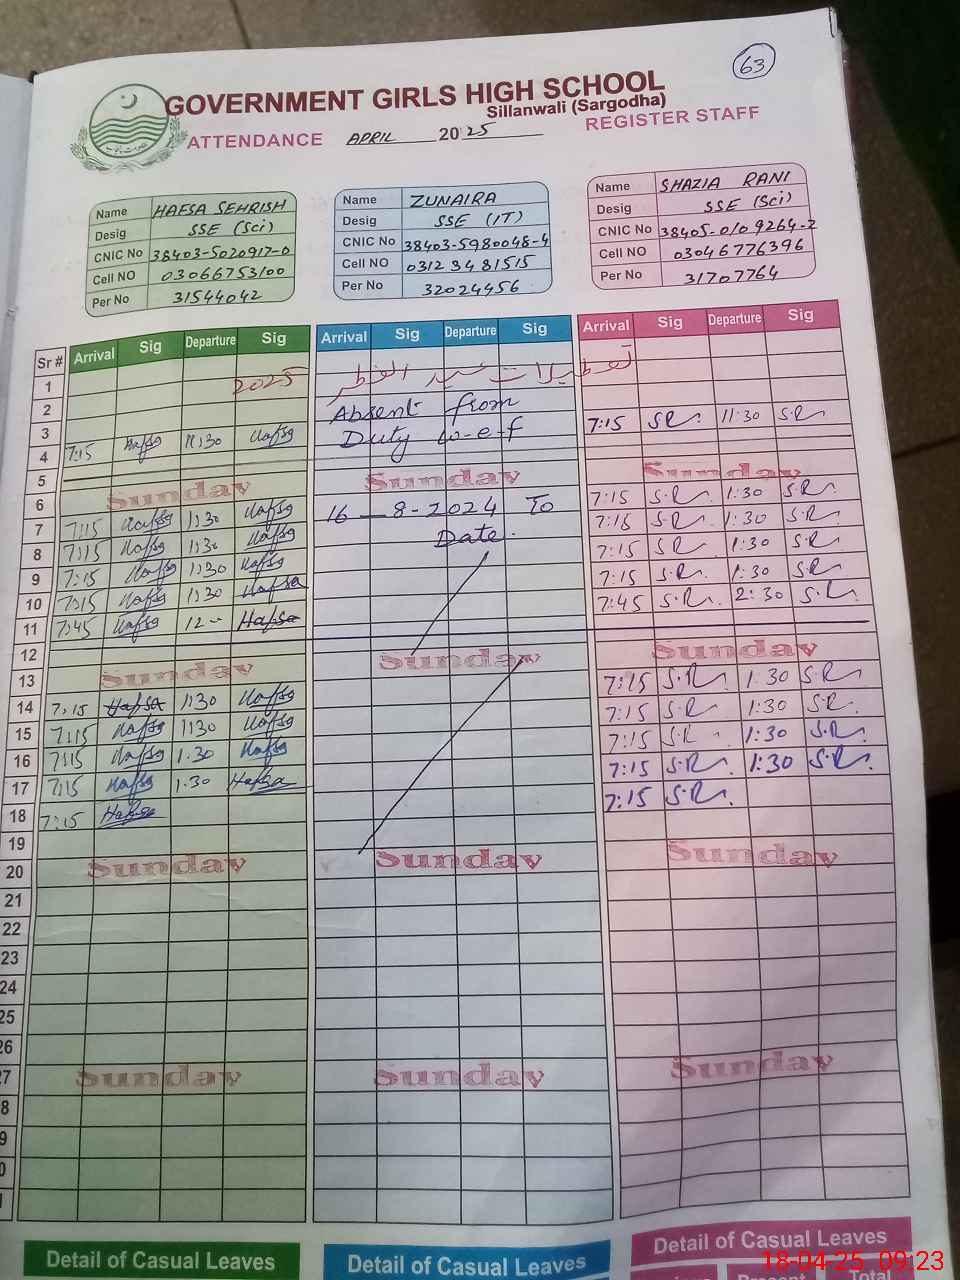 63
GOVERNMENT GIRLS HIGH SCHOOL
Sillanwali (Sargodha)
ATTENDANCE APRIL 2025 REGISTER STAFF
Name HAFSA SEHRISH
Desig SSE (Sci)
CNIC No 38403-5020917-0
Cell NO 03066753100
Per No 31544042
Name ZUNAIRA
Desig SSE (IT)
CNIC No 38403-5980048-4
Cell NO 0312 3481515
Per No 32024456
Name SHAZIA RANI
Desig SSE (Sci)
CNIC No 38405-0109264-2
Cell NO 03046776396
Per No 31707764
Sr # Arrival Sig Departure Sig Arrival Sig Departure Sig Arrival Sig Departure Sig
1 2025 تعطیلات عید الفطر
2 Absent from
3 7:15 Hafsa 11:30 Hafsa Duty w-e-f 7:15 S.R. 11:30 S.R
4
5 Sunday Sunday Sunday
6 16-8-2024 To 7:15 S.R. 1:30 S.R.
7 7:15 Hafsa 1:30 Hafsa Date. 7:15 S.R. 1:30 S.R.
8 7:15 Hafsa 1:30 Hafsa 7:15 S.R. 1:30 S.R.
9 7:15 Hafsa 1:30 Hafsa 7:15 S.R. 1:30 S.R.
10 7:15 Hafsa 1:30 Hafsa 7:45 S.R. 2:30 S.R.
11 7:45 Hafsa 12 Hafsa
12 Sunday Sunday
13 Sunday 7:15 S.R. 1:30 S.R.
14 7:15 Hafsa 1:30 Hafsa 7:15 S.R. 1:30 S.R.
15 7:15 Hafsa 1:30 Hafsa 7:15 S.R. 1:30 S.R.
16 7:15 Hafsa 1.30 Hafsa 7:15 S.R. 1:30 S.R.
17 7:15 Hafsa 1.30 Hafsa 7:15 S.R.
18 7:15 Hafsa
19
20 Sunday Sunday Sunday
21
22
23
24
25
26
27 Sunday Sunday Sunday
8
9
0
Detail of Casual Leaves Detail of Casual Leaves Detail of Casual Leaves
18-04-25 09:23